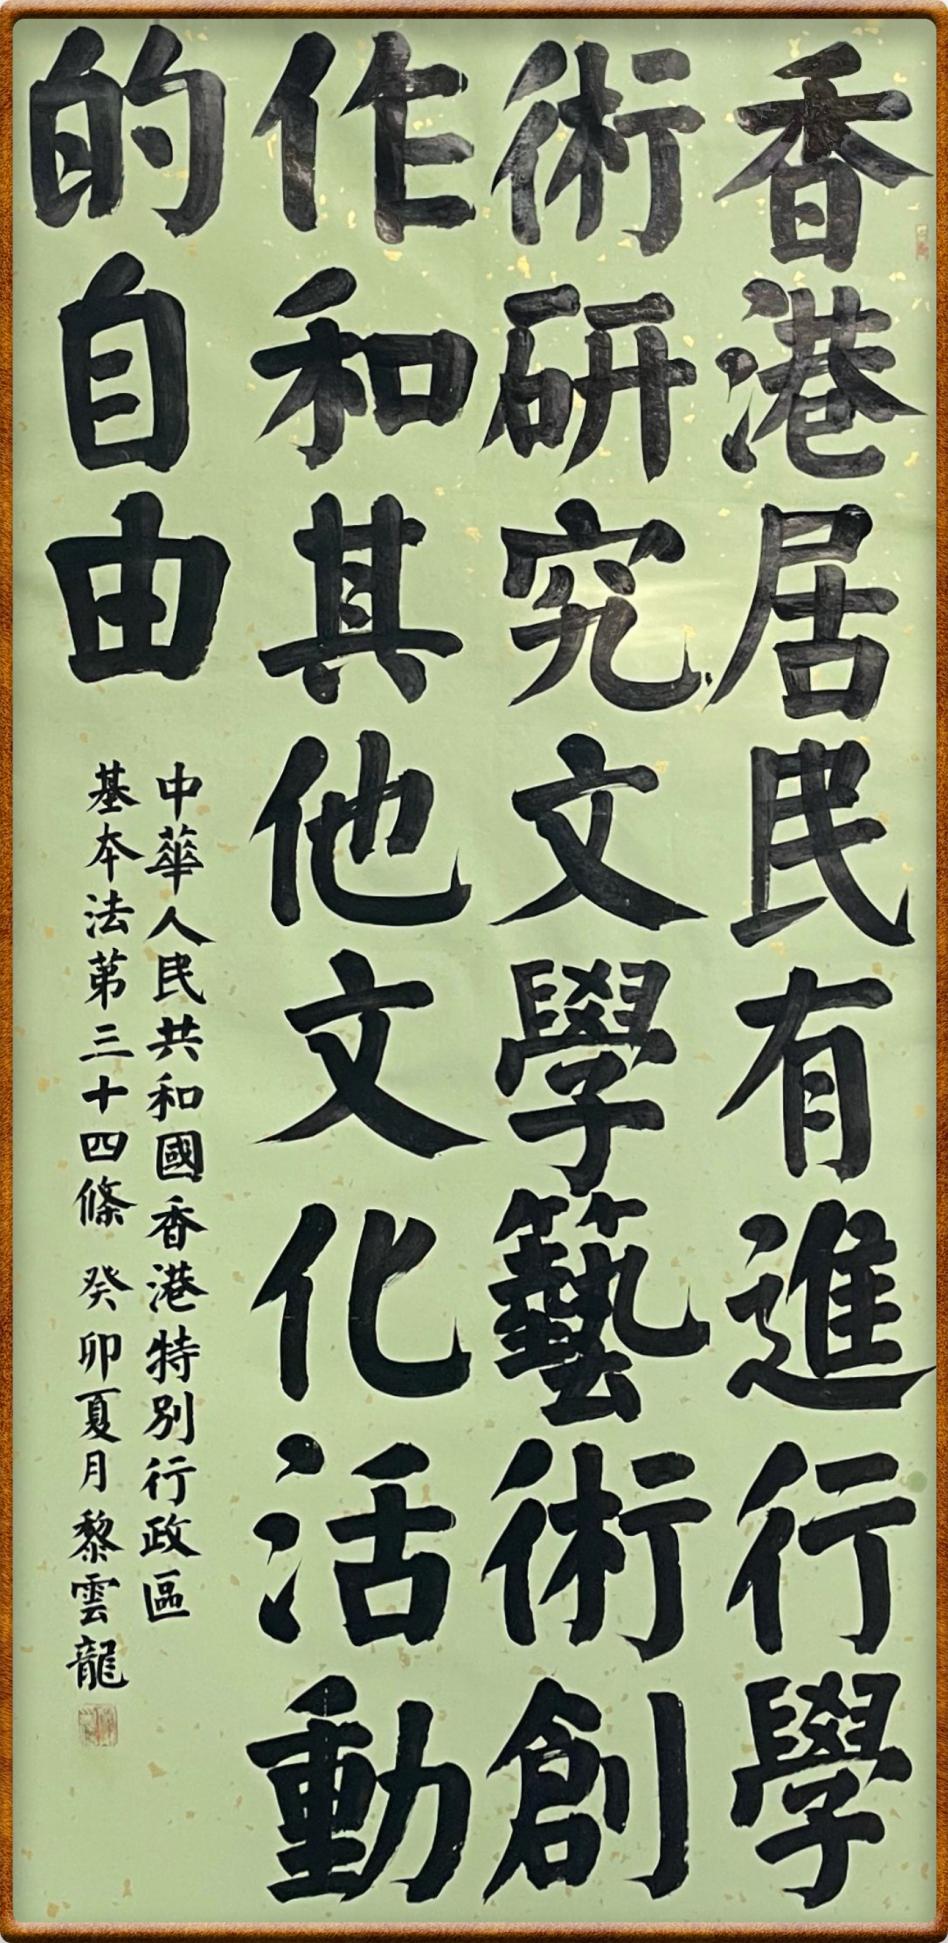 香港居民有進行學
術研究文學藝術創
作和其他文化活動
的自由
中華人民共和國香港特別行政區
基本法第三十四條 癸卯夏月黎雲龍